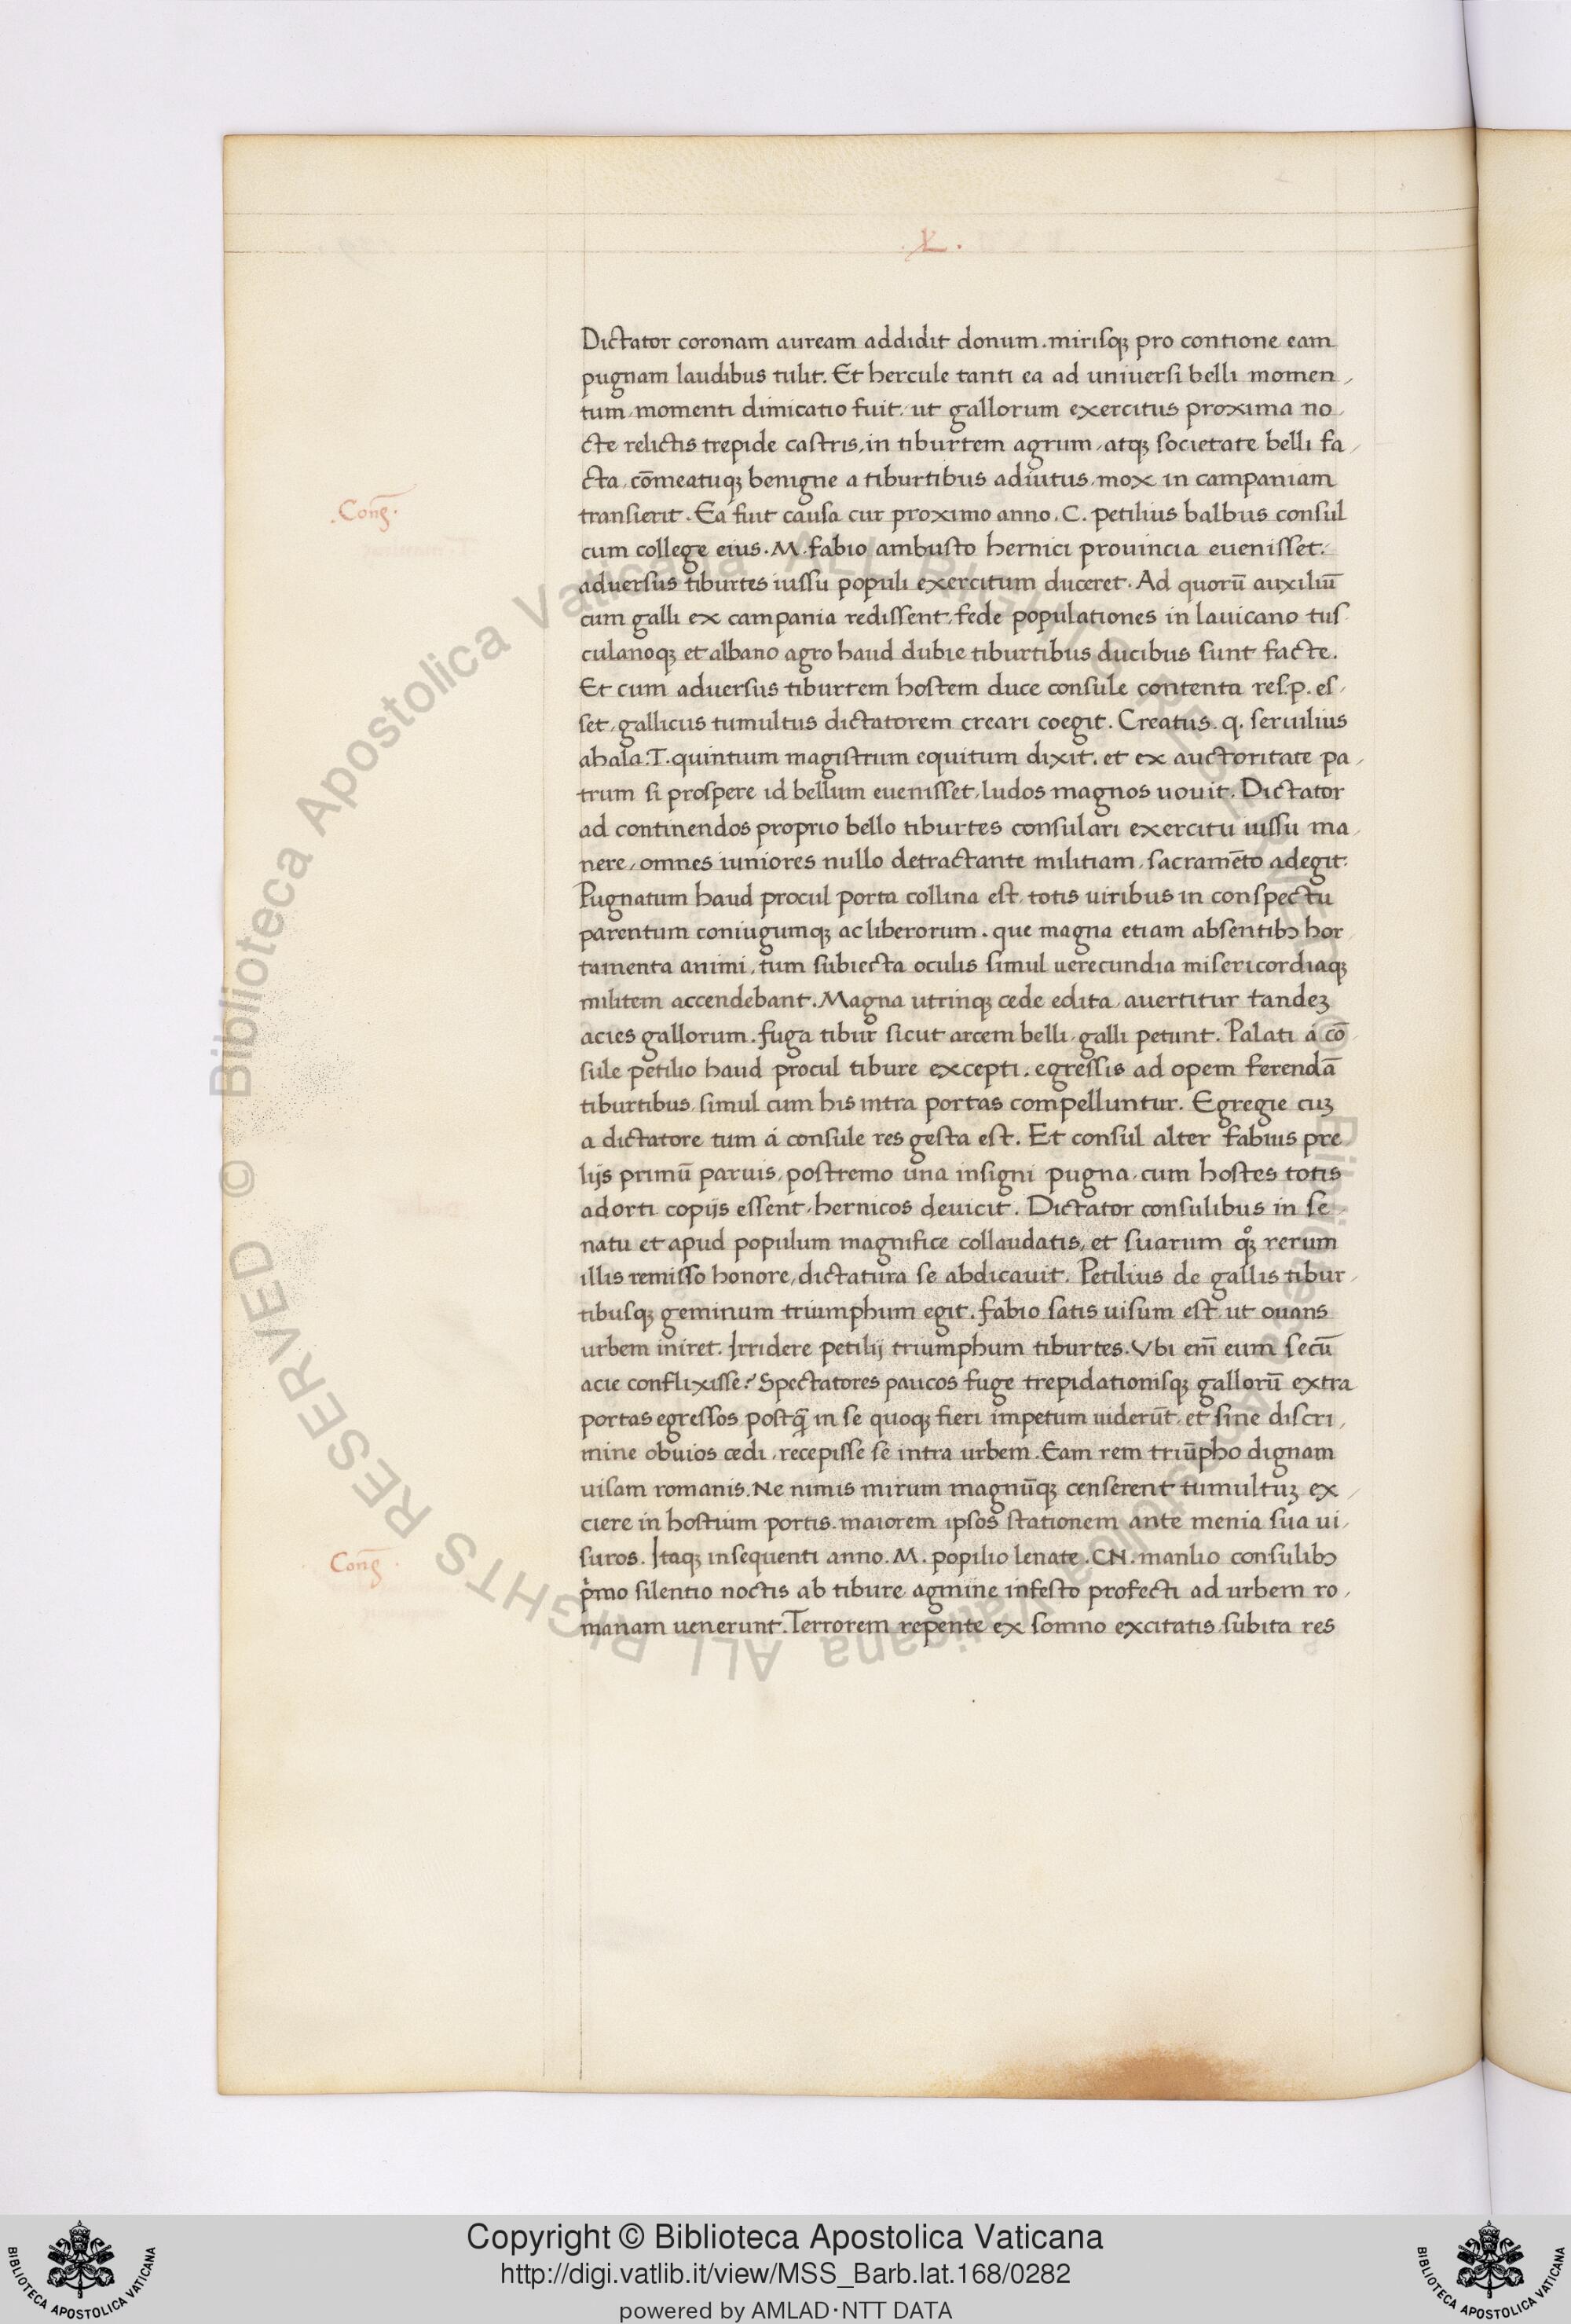 .L.
Dictator coronam auream addidit donum. mirisqꝫ pro contione eam
pugnam laudibus tulit. Et hercule tanti ea ad uniuersi belli momen
tum momenti dimicatio fuit, ut gallorum exercitus proxima no
cte relictis trepide castris, in tiburtem agrum, atqꝫ societate belli fa
cta, cōmeatuqꝫ benigne a tiburtibus adiutus, mox in campaniam
.Conſ̄.
transierit. Ea fuit causa cur proximo anno. C. petilius balbus consul
cum college eius. M. fabio ambusto hernici prouincia euenisset.
aduersus tiburtes iussu populi exercitum duceret. Ad quorū auxiliū
cum galli ex campania redissent, fede populationes in lauicano tus
culanoqꝫ et albano agro haud dubie tiburtibus ducibus sunt facte.
Et cum aduersus tiburtem hostem duce consule contenta res.p. es
set, gallicus tumultus dictatorem creari coegit. Creatus. q. seruilius
ahala. T. quintium magistrum equitum dixit. et ex auctoritate pa
trum si prospere id bellum euenisset, ludos magnos uouit. Dictator
ad continendos proprio bello tiburtes consulari exercitu iussu ma
nere, omnes iuniores nullo detractante militiam, sacramēto adegit.
Pugnatum haud procul porta collina est, totis uiribus in conspectu
parentum coniugumqꝫ ac liberorum. que magna etiam absentibꝰ hor
tamenta animi, tum subiecta oculis simul uerecundia misericordiaqꝫ
militem accendebant. Magna utrinqꝫ cede edita, auertitur tandeꝫ
acies gallorum. fuga tibur sicut arcem belli, galli petunt. Palati á cō
sule petilio haud procul tibure excepti. egressis ad opem ferendā
tiburtibus, simul cum his intra portas compelluntur. Egregie cuꝫ
a dictatore tum á consule res gesta est. Et consul alter fabius pre
lijs primū paruis, postremo una insigni pugna, cum hostes totis
adorti copijs essent, hernicos deuicit. Dictator consulibus in se
natu et apud populum magnifice collaudatis, et suarum qͦꝫ rerum
illis remisso honore, dictatura se abdicauit. Petilius de gallis tibur
tibusqꝫ geminum triumphum egit. fabio satis uisum est, ut ouans
urbem iniret. Irridere petilij triumphum tiburtes. Vbi eni̅ eum secū
acie conflixisse? Spectatores paucos fuge trepidationisqꝫ gallorū extra
portas egressos, postq̄ in se quoqꝫ fieri impetum uiderūt, et sine discri
mine obuios cędi, recepisse se intra urbem. Eam rem triūpho dignam
uisam romanis. Ne nimis mirum magnūqꝫ censerent tumultuꝫ ex
ciere in hostium portis. maiorem ipsos stationem ante menia sua ui
.Conſ̄.
suros. Itaqꝫ insequenti anno. M. popilio lenate. CN. manlio consulibꝰ
pͥmo silentio noctis ab tibure agmine infesto profecti ad urbem ro
manam uenerunt. Terrorem repente ex somno excitatis subita res
© Biblioteca Apostolica Vaticana ALL RIGHTS RESERVED © Biblioteca Apostolica Vaticana ALL RIGHTS RESERVED
Copyright © Biblioteca Apostolica Vaticana
http://digi.vatlib.it/view/MSS_Barb.lat.168/0282
powered by AMLAD·NTT DATA
BIBLIOTECA APOSTOLICA VATICANA
BIBLIOTECA APOSTOLICA VATICANA